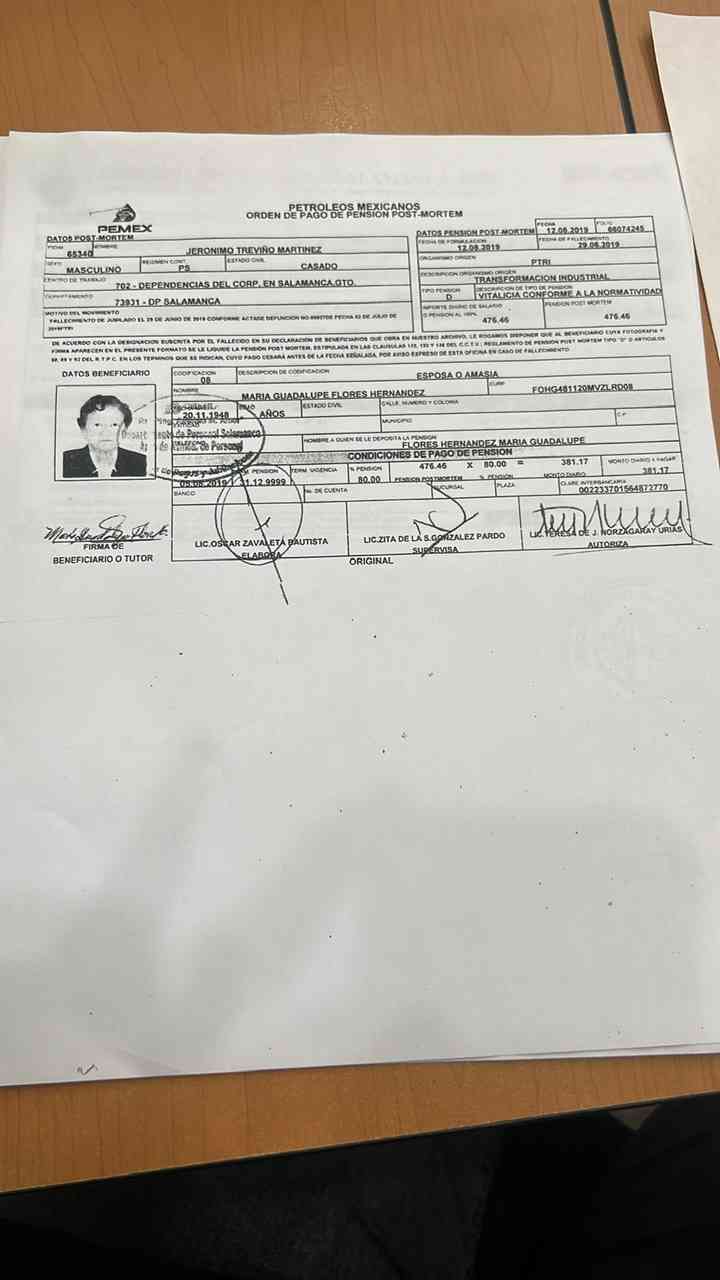 PETROLEOS MEXICANOS
ORDEN DE PAGO DE PENSION POST-MORTEM
PEMEX
DATOS POST-MORTEM
FICHA NOMBRE
65340 JERONIMO TREVIÑO MARTINEZ
SEXO REGIMEN CONT. ESTADO CIVIL
MASCULINO PS CASADO
CENTRO DE TRABAJO
702 - DEPENDENCIAS DEL CORP, EN SALAMANCA,GTO.
DEPARTAMENTO
73931 - DP SALAMANCA
MOTIVO DEL MOVIMIENTO
FALLECIMIENTO DE JUBILADO EL 29 DE JUNIO DE 2019 CONFORME ACTA DE DEFUNCION FECHA 02 DE JULIO DE
DATOS PENSION POST-MORTEM
FECHA FOLIO
12.08.2019 66074245
FECHA DE FORMULACION FECHA DE FALLECIMIENTO
12.08.2019 29.06.2019
ORGANISMO ORIGEN
PTRI
DESCRIPCION ORGANISMO ORIGEN
TRANSFORMACION INDUSTRIAL
TIPO PENSION DESCRIPCION DE TIPO DE PENSION
D VITALICIA CONFORME A LA NORMATIVIDAD
IMPORTE DIARIO DE SALARIO PENSION POST MORTEM
O PENSION AL 100%
476.46 476.46
DE ACUERDO CON LA DESIGNACION SUSCRITA POR EL FALLECIDO EN SU DECLARACION DE BENEFICIARIOS QUE OBRA EN NUESTRO ARCHIVO, LE ROGAMOS DISPONER QUE AL BENEFICIARIO CUYA FOTOGRAFIA Y
FIRMA APARECEN EN EL PRESENTE FORMATO SE LE LIQUIDE LA PENSION POST MORTEM, ESTIPULADA EN LAS CLAUSULAS 132, 133 Y 134 DEL C.C.T.V.; REGLAMENTO DE PENSION POST MORTEM TIPO "D" O ARTICULOS
Y 92 DEL R.T.P.C. EN LOS TERMINOS QUE SE INDICAN, CUYO PAGO CESARÁ ANTES DE LA FECHA SEÑALADA, POR AVISO EXPRESO DE ESTA OFICINA EN CASO DE FALLECIMIENTO.
DATOS BENEFICIARIO
CODIFICACION DESCRIPCION DE CODIFICACION
08 ESPOSA O AMASIA
NOMBRE CURP
MARIA GUADALUPE FLORES HERNANDEZ FOHG481120MVZLRD08
EDAD ESTADO CIVIL CALLE, NUMERO Y COLONIA
20.11.1948 AÑOS
MUNICIPIO C.P
de Personal Salamanca
de Personal
TELEFONO
NOMBRE A QUIEN SE LE DEPOSITA LA PENSION
FLORES HERNANDEZ MARIA GUADALUPE
CONDICIONES DE PAGO DE PENSION
PENSION TERM VIGENCIA % PENSION 476.46 X 80.00 = 381.17 MONTO DIARIO A PAGAR
31.12.9999 80.00 PENSION POSTMORTEM % PENSIÓN MONTO DIARIO 381.17
BANCO No. DE CUENTA SUCURSAL PLAZA CLABE INTERBANCARIA
002233701564872770
FIRMA DE
BENEFICIARIO O TUTOR
LIC.OSCAR ZAVALETA BAUTISTA
ELABORA
LIC.ZITA DE LA S.GONZALEZ PARDO
SUPERVISA
LIC.TERESA DE J. NORZAGARAY URIAS
AUTORIZA
ORIGINAL